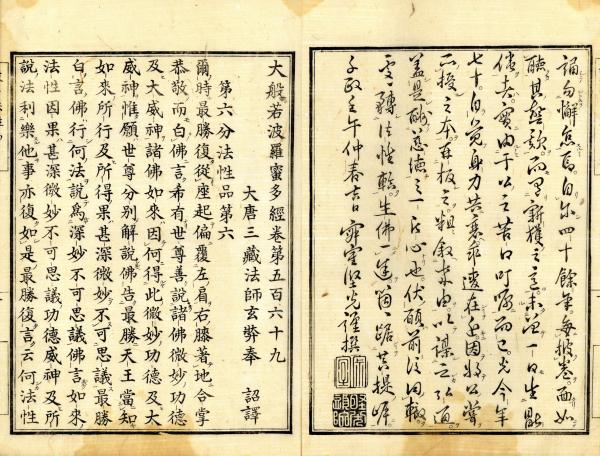 誦勿懈怠焉自尓四十餘年每披卷而如
聽其慈而之意未一日生
實由于公之苦口叮嚀而已今年
七十自覺身力共衰遺在近因將公嘗
所授之本之粗叙來由以謀之弘通
蓋是酬慈德之一片心也伏願前伎同轍
轉法性輪生佛一途箇箇踞菩提
文政壬午仲春吉 寂室堅光謹撰
大般若波羅蜜多經卷第五百六十九
大唐三藏法師玄奘奉 詔譯
第六分法性品第六
爾時最勝復從座起偏覆左肩右膝著地合掌
恭敬而白佛言希有世尊善說諸佛微妙功德
及大威神諸佛如來因何得此微妙功德及大
威神惟願世尊分別解說佛告最勝天王當知
如來所行及所得果甚深微妙不可思議最勝
白言佛行何法說爲深妙不可思議佛言如來
法性因果甚深微妙不可思議功德威神及所
說法利樂他事亦復如是最勝復言云何法性